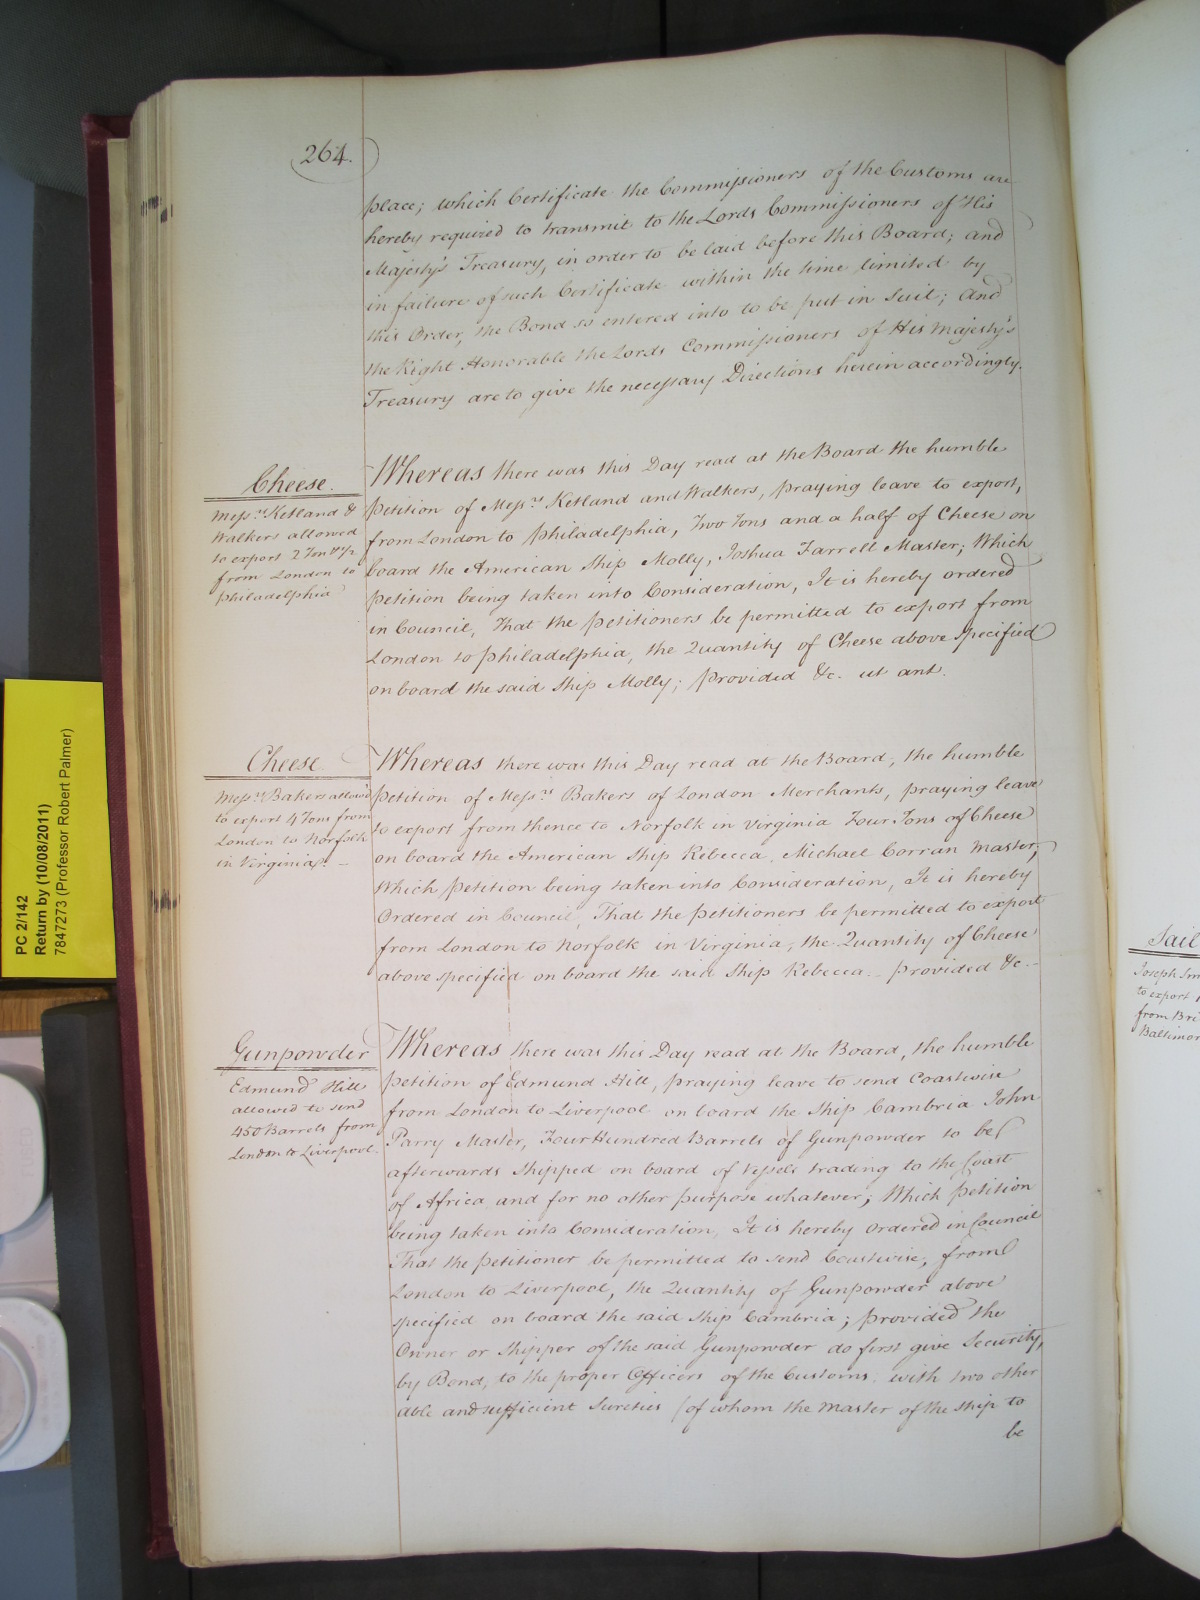 264.
place; which Certificate the Commissioners of the Customs are
hereby required to transmit to the Lords Commissioners of His
Majesty's Treasury, in order to be laid before this Board; and
in failure of such Certificate within the time limited by
this Order, the Bond so entered into to be put in Suit; And
the Right Honorable the Lords Commissioners of His Majesty's
Treasury are to give the necessary Directions herein accordingly.
Cheese.
Messrs. Ketland &
Walkers allowed
to export 2 Tons & 1/2
from London to
Philadelphia
Whereas there was this Day read at the Board the humble
Petition of Messrs. Ketland and Walkers, praying leave to export,
from London to Philadelphia, Two Tons and a half of Cheese on
board the American Ship Molly, Joshua Farrell Master; Which
Petition being taken into Consideration, It is hereby ordered
in Council, That the Petitioners be permitted to export from
London to Philadelphia, the Quantity of Cheese above specified
on board the said Ship Molly; provided &c. ut ant.
Cheese
Messrs. Bakers allow'd
to export 4 Tons from
London to Norfolk
in Virginia. —
Whereas there was this Day read at the Board, the humble
Petition of Messrs. Bakers of London Merchants, praying leave
to export from thence to Norfolk in Virginia Four Tons of Cheese
on board the American Ship Rebecca, Michael Corran Master;
Which Petition being taken into Consideration, It is hereby
Ordered in Council, That the Petitioners be permitted to export
from London to Norfolk in Virginia, the Quantity of Cheese
above specified on board the said Ship Rebecca. provided &c.
Gunpowder
Edmund Hill
allowed to send
450 Barrels from
London to Liverpool.
Whereas there was this Day read at the Board, the humble
petition of Edmund Hill, praying leave to send Coastwise
from London to Liverpool on board the Ship Cambria John
Parry Master, Four Hundred Barrels of Gunpowder to be
afterwards shipped on board of Vessels trading to the Coast
of Africa and for no other purpose whatever; Which Petition
being taken into Consideration, It is hereby Ordered in Council
That the Petitioner be permitted to send Coastwise, from
London to Liverpool, the Quantity of Gunpowder above
specified on board the said Ship Cambria; provided the
Owner or Shipper of the said Gunpowder do first give Security,
by Bond, to the proper Officers of the Customs, with two other
able and sufficient Sureties (of whom the Master of the Ship to
be
PC 2/142
Return by (10/08/2011)
7847273 (Professor Robert Palmer)
Sail
Joseph
to export
from Bri
Baltimor